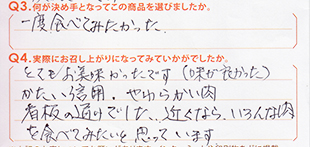 Q3.何が決め手となってこの商品を選びましたか。
一度食べてみたかった
Q4.実際にお召し上がりになってみていかがでしたか。
とてもお美味かったです(味が良かった)
かたい信用、やわらかい肉
看板の通りでした、近くなら、いろんな肉
を食べてみたいと思っています